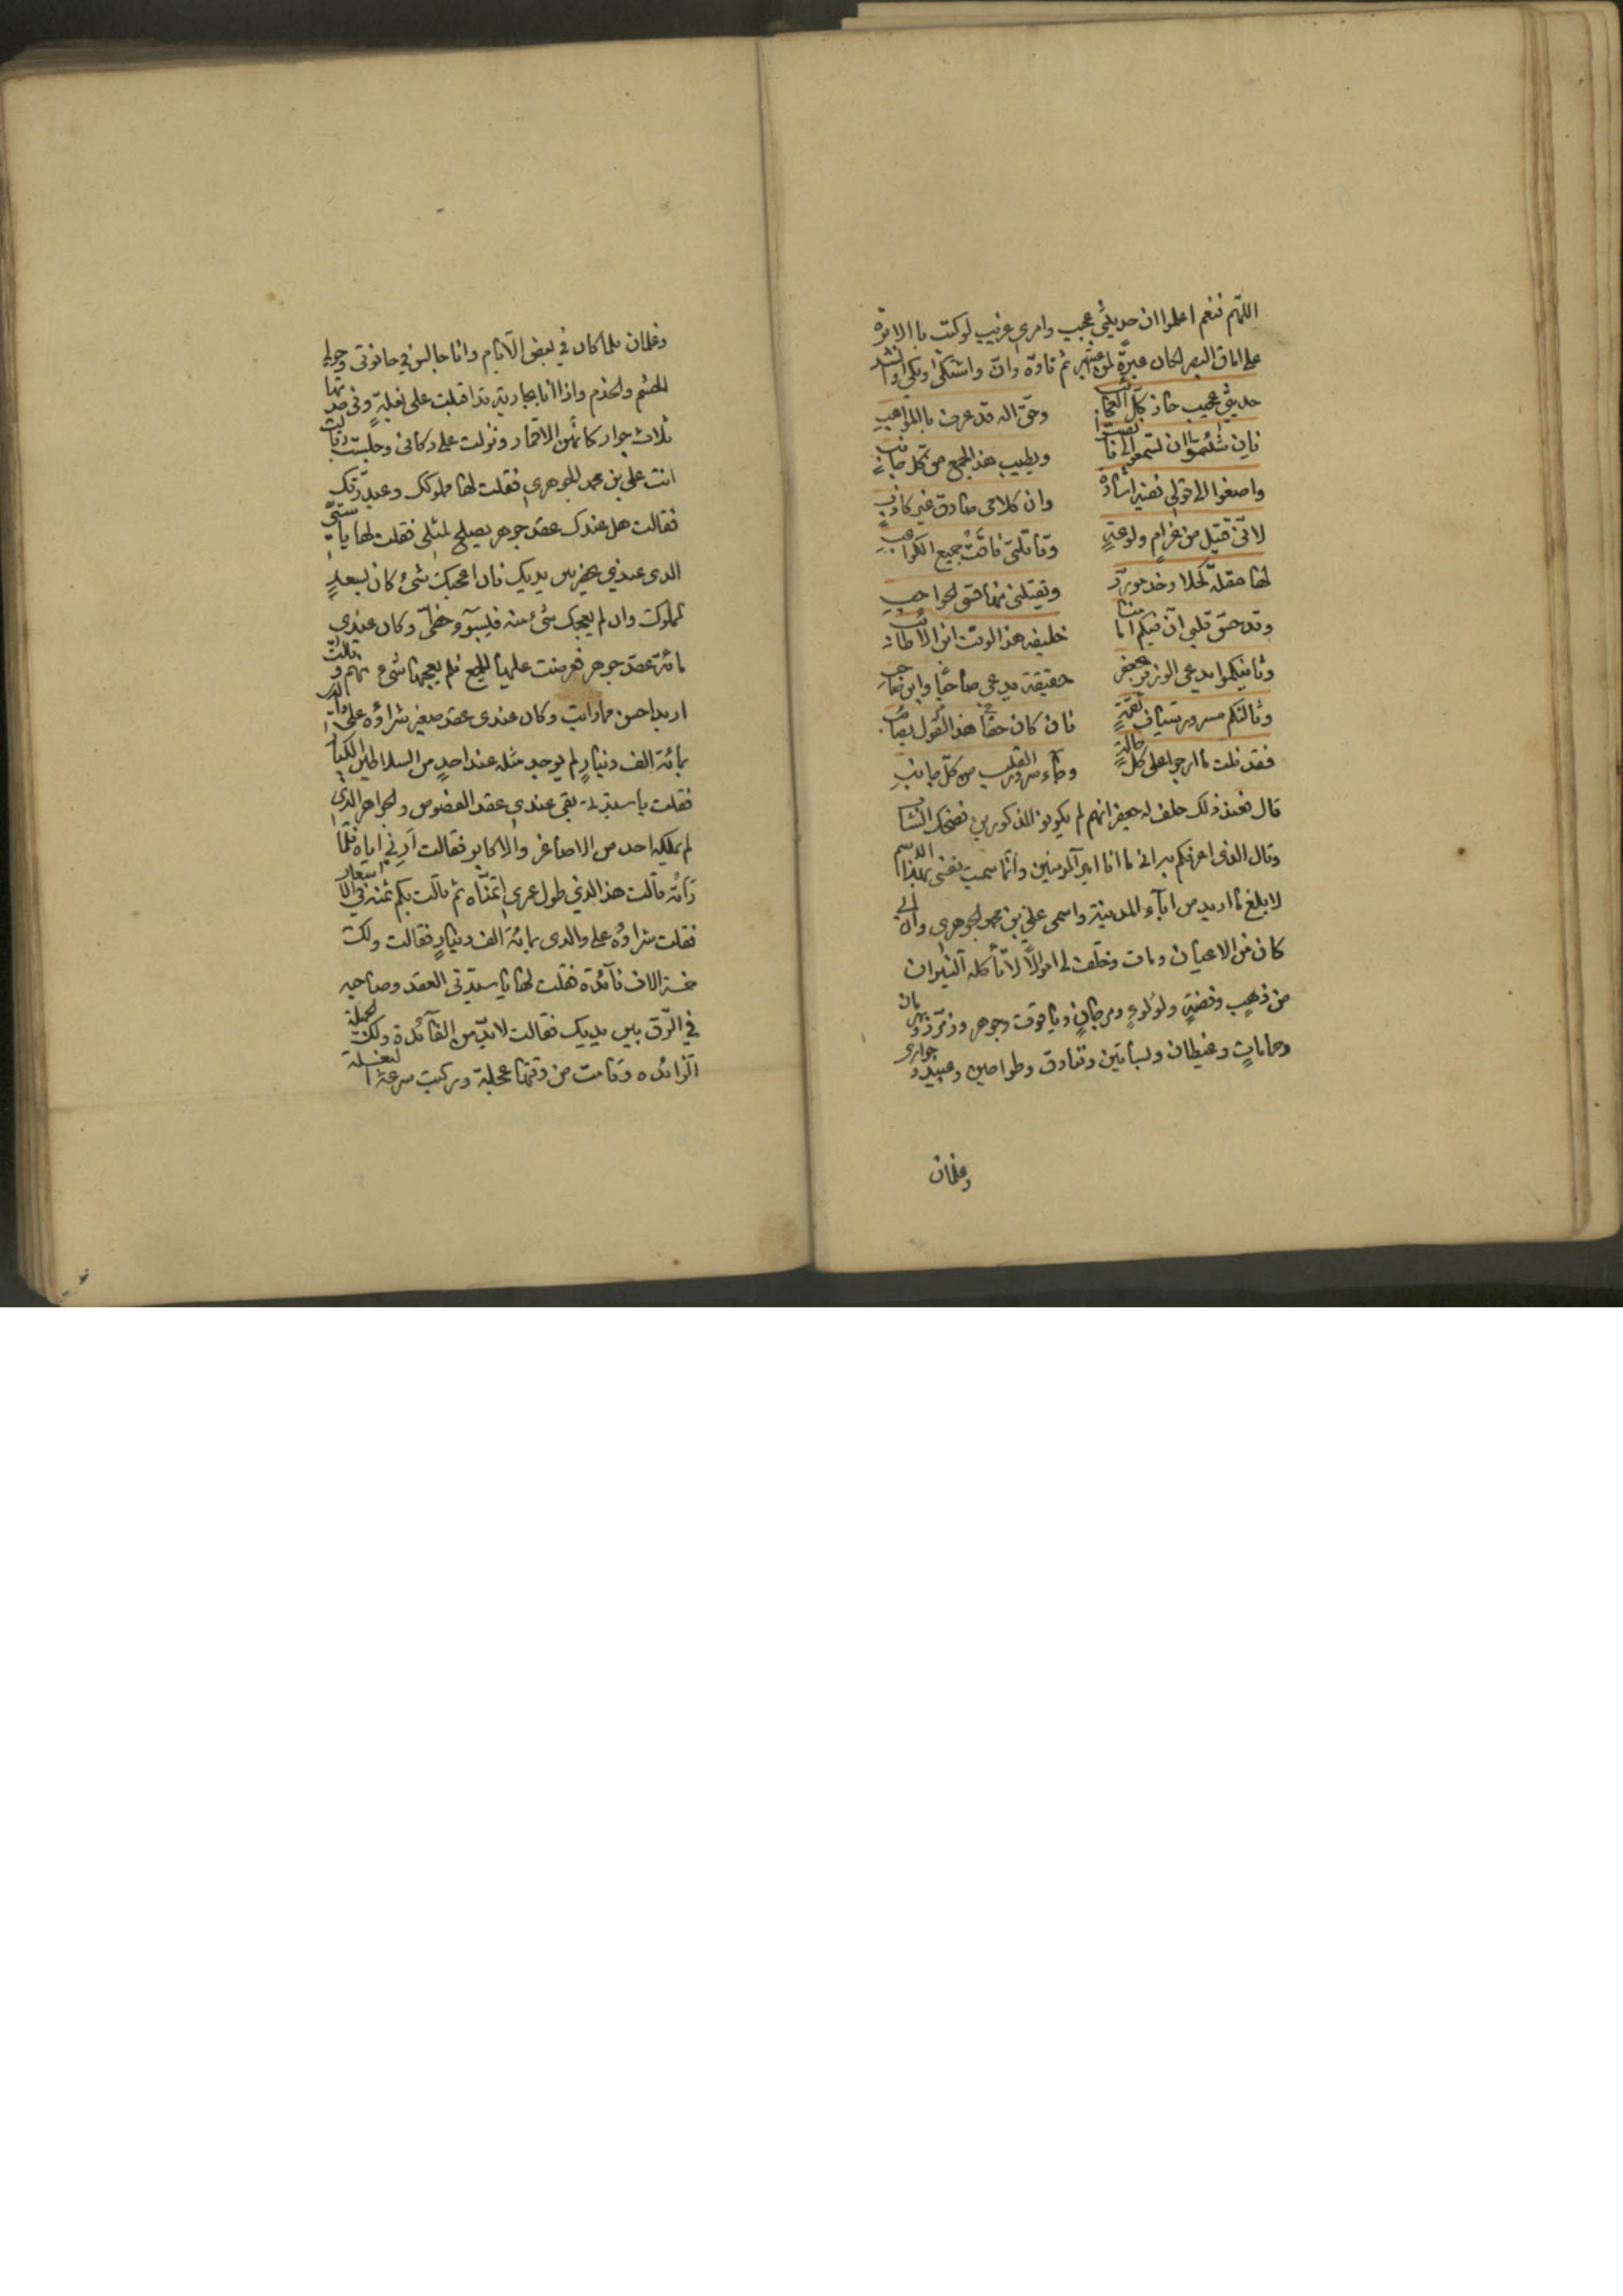 اللهم نعم اعلموا ان حديثي عجيب وامري غريب لو كتب بالابره
على اماق البصر لكان عبرةً لمن يعتبر ثم تاوّه وانّ واشتكى وبكى وانشد
حديثي عجيب حاز كلّ العجائب وحقّ اله قد عرف بالمواهب
فاِن شئتموا ان تسمعوا لي فانصتوا ويطيب هذا الجمع من كلّ جانبٍ
واصغوا الى قولي ففيه اشارة وان كلامي صادق غير كاذبٍ
لانّي قتيل من غرامٍ ولوعةٍ وقاتلتي فاقت جميع الكواعب
لها مقلة كحلا وخد مورّد وتقتلني منها قسي الحواجب
وقد حسّ قلبي انّ فيكم امامنا خليفة هذا الوقت ابن الاطائب
وثانيكموا يدعى الوزير بجعفر حقيقة يدعى صاحبًا وابن صاحب
وثالثكم مسرور سيّاف نقمةٍ فان كان حقًا هذا القول بصائب
فقد نلت ما ارجوا على كلّ حالةٍ وجاء سرور القلب من كلّ جانبِ
قال فعند ذلك حلف له جعفر انهم لم يكونوا المذكورين فضحك الشاب
وقال الذي اعرفكم به اني ما انا امير المومنين وانما سميت نفسي بهذا الاسم
لابلغ ما اريد من ابآء المدينة واسمي علي بن محمد الجوهري وابي
كان من الاعيان ومات وخلّف لي اموالًا لا تأكله النيران
من ذهبٍ وفضةٍ ولؤلوءٍ ومرجانٍ وياقوت وجوهر وزمرّد وبهرمان
وحماماتٍ وغيطان وبساتين وفنادق وطواحين وعبيد وجواري
وغلمان
وغلمان فلما كان في بعض الايام وانا جالس في حانوتي وحولي
الحشم والخدم واذا انا بجارية قد اقبلت على بغلةٍ وفي خدمتها
ثلاث جوار كانهن الاقمار ونزلت على دكاني وجلست وقالت
انت علي بن محمد الجوهري فقلت لها مملوكك وعبد رقك
فقالت هل عندك عقد جوهر يصلح لمثلي فقلت لها يا ستي
الذي عندي يحضر بين يديك فان اعجبك شئ كان بسعد
المملوك وان لم يعجبك شئ منه فلسوء حظي وكان عندي
مائة عقد جوهر فعرضت عليها الجميع فلم يعجبها شئ منهم وقالت
اريد احسن ممارايت وكان عندي عقد صغير شراؤه على والدي
بمائة الف دينارٍ لم يوجد مثله عند احدٍ من السلاطين الكبار
فقلت يا سيدتي بقي عندي عقد الفصوص والجواهر الذي
لم يملكه احد من الاصاغر والاكابر فقالت اَرِني اياه فلمّا
رَأتْه قالت هذا الذي طول عمري اتمنّاه ثم قالت بكم ثمنه في الاسعار
فقلت شراؤه على والدي بمائة الف دينارٍ فقالت ولك
خمسة الاف فآئدة فقلت لها يا سيدتي العقد وصاحبه
في الرّق بين يديك فقالت لا بدّ من الفآئدة ولك الجملة
الزائده وقامت من وقتها عجلة وركبت سرعة البغلة